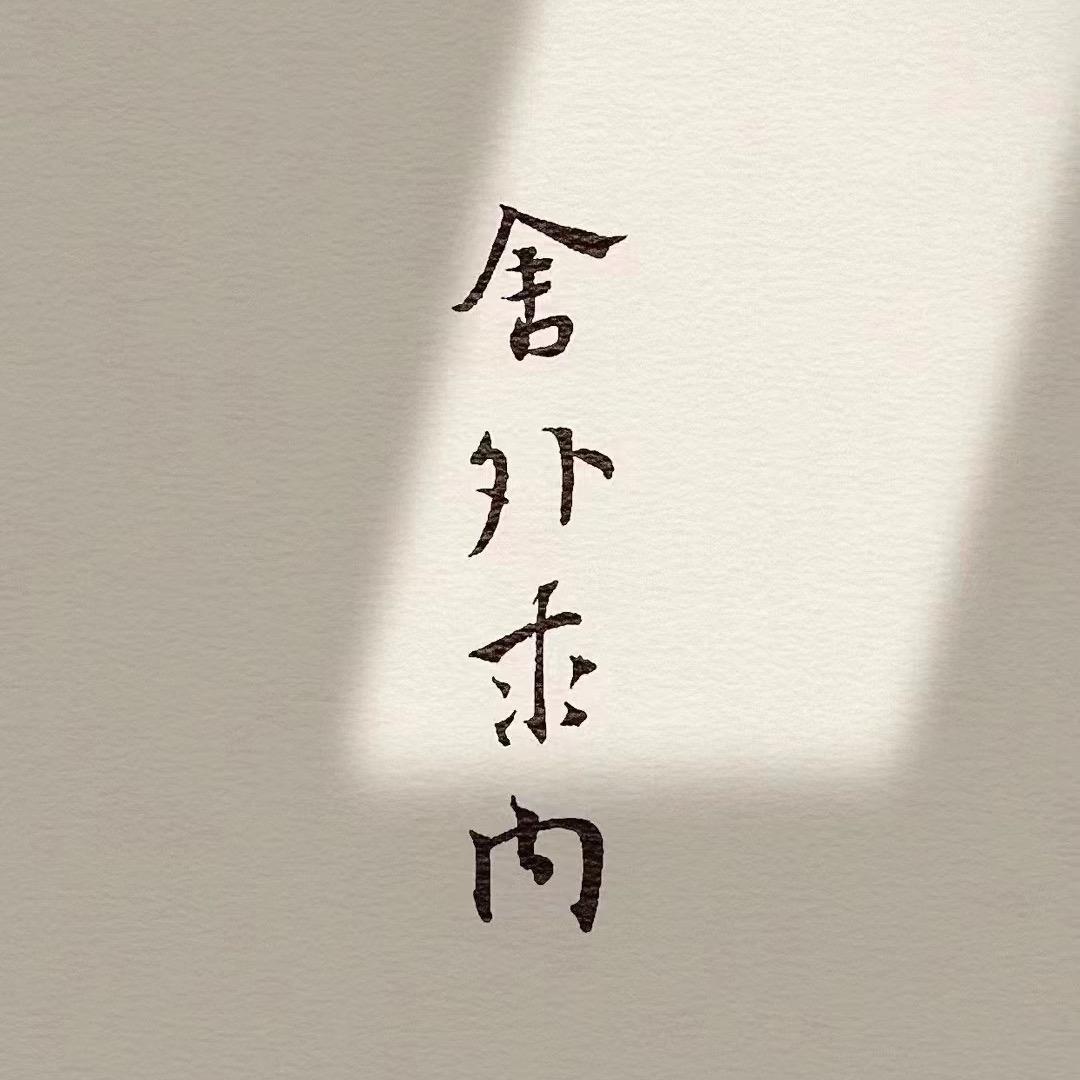 舍外求内